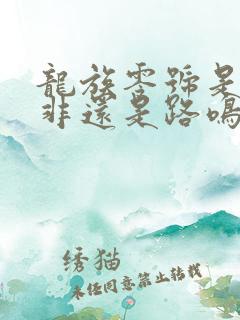 龍族零號是
非還是路鳴
绣猫
未经同意禁止转载